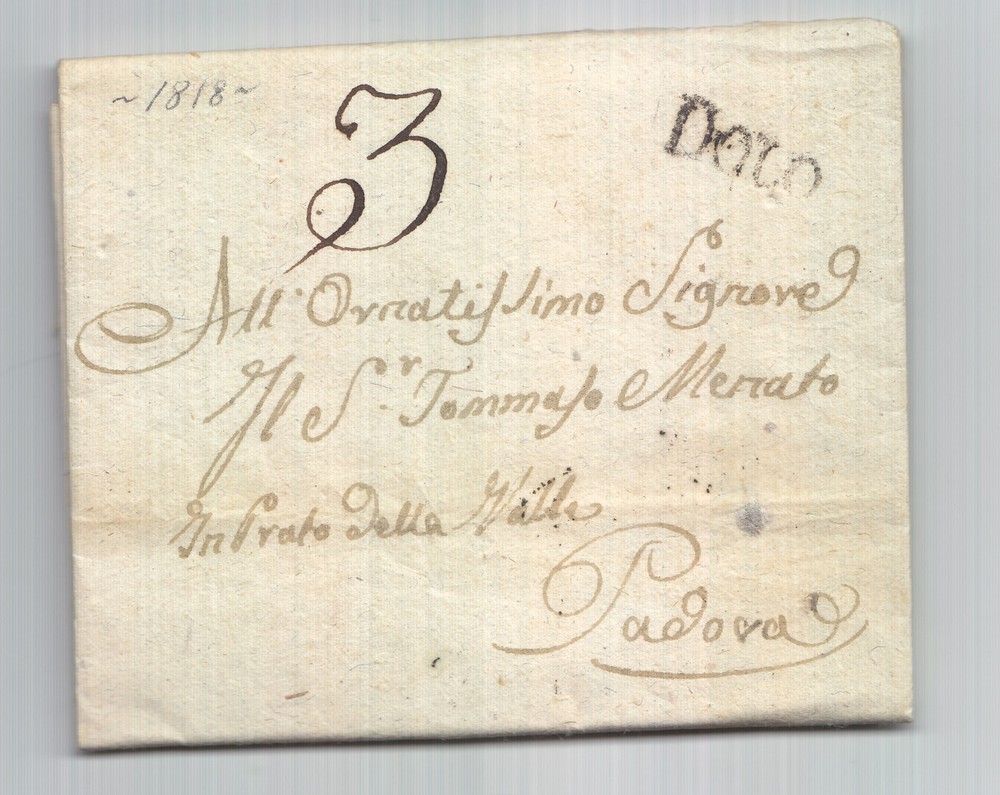 ~1818~
3
DOLO
All' Ornatissimo Signore
Il Sr. Tommaso Menato
In Prato della Valle
Padova